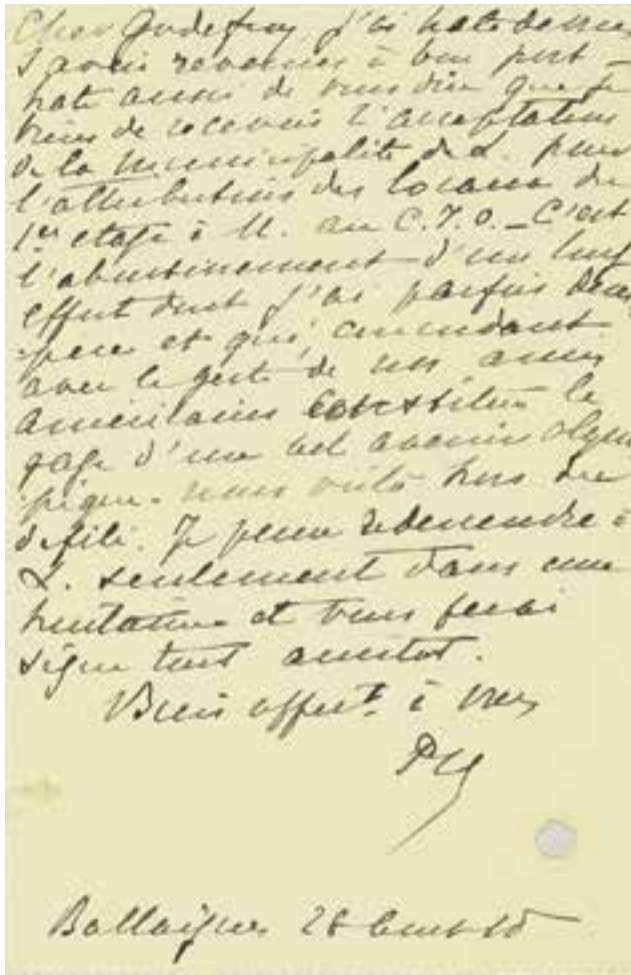 Cher Godefroy j'ai hâte de vous
savoir revenus à bon port –
hâte aussi de vous dire que je
viens de recevoir l'acceptation
de la municipalité de L. pour
l'attribution des locaux du
1er étage à M. au C.I.O. – C'est
l'aboutissement d'un long
effort dont j'ai parfois déses
-péré et qui, concordant
avec le geste de nos amis
américains constitue le
gage d'un bel avenir olym
pique. nous voilà hors du
défilé. Je pense redescendre à
L. seulement dans une
huitaine et vous ferai
signe tout aussitôt.
Bien affect. à vous
PC
Ballaigues 28